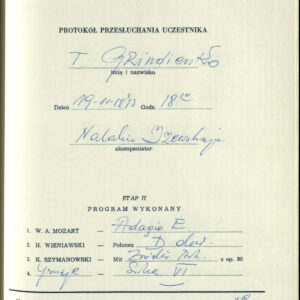 PROTOKÓŁ PRZESŁUCHANIA UCZESTNIKA
T. Grindienko
imię i nazwisko
Dzień 19-11-1972 Godz. 18
akompaniator
ETAP II
PROGRAM WYKONANY
1. W. A. MOZART — Adagio E.
2. H. WIENIAWSKI — Polonez D dur.
3. K. SZYMANOWSKI — Mit z op. 30
4. Ysaye — VI